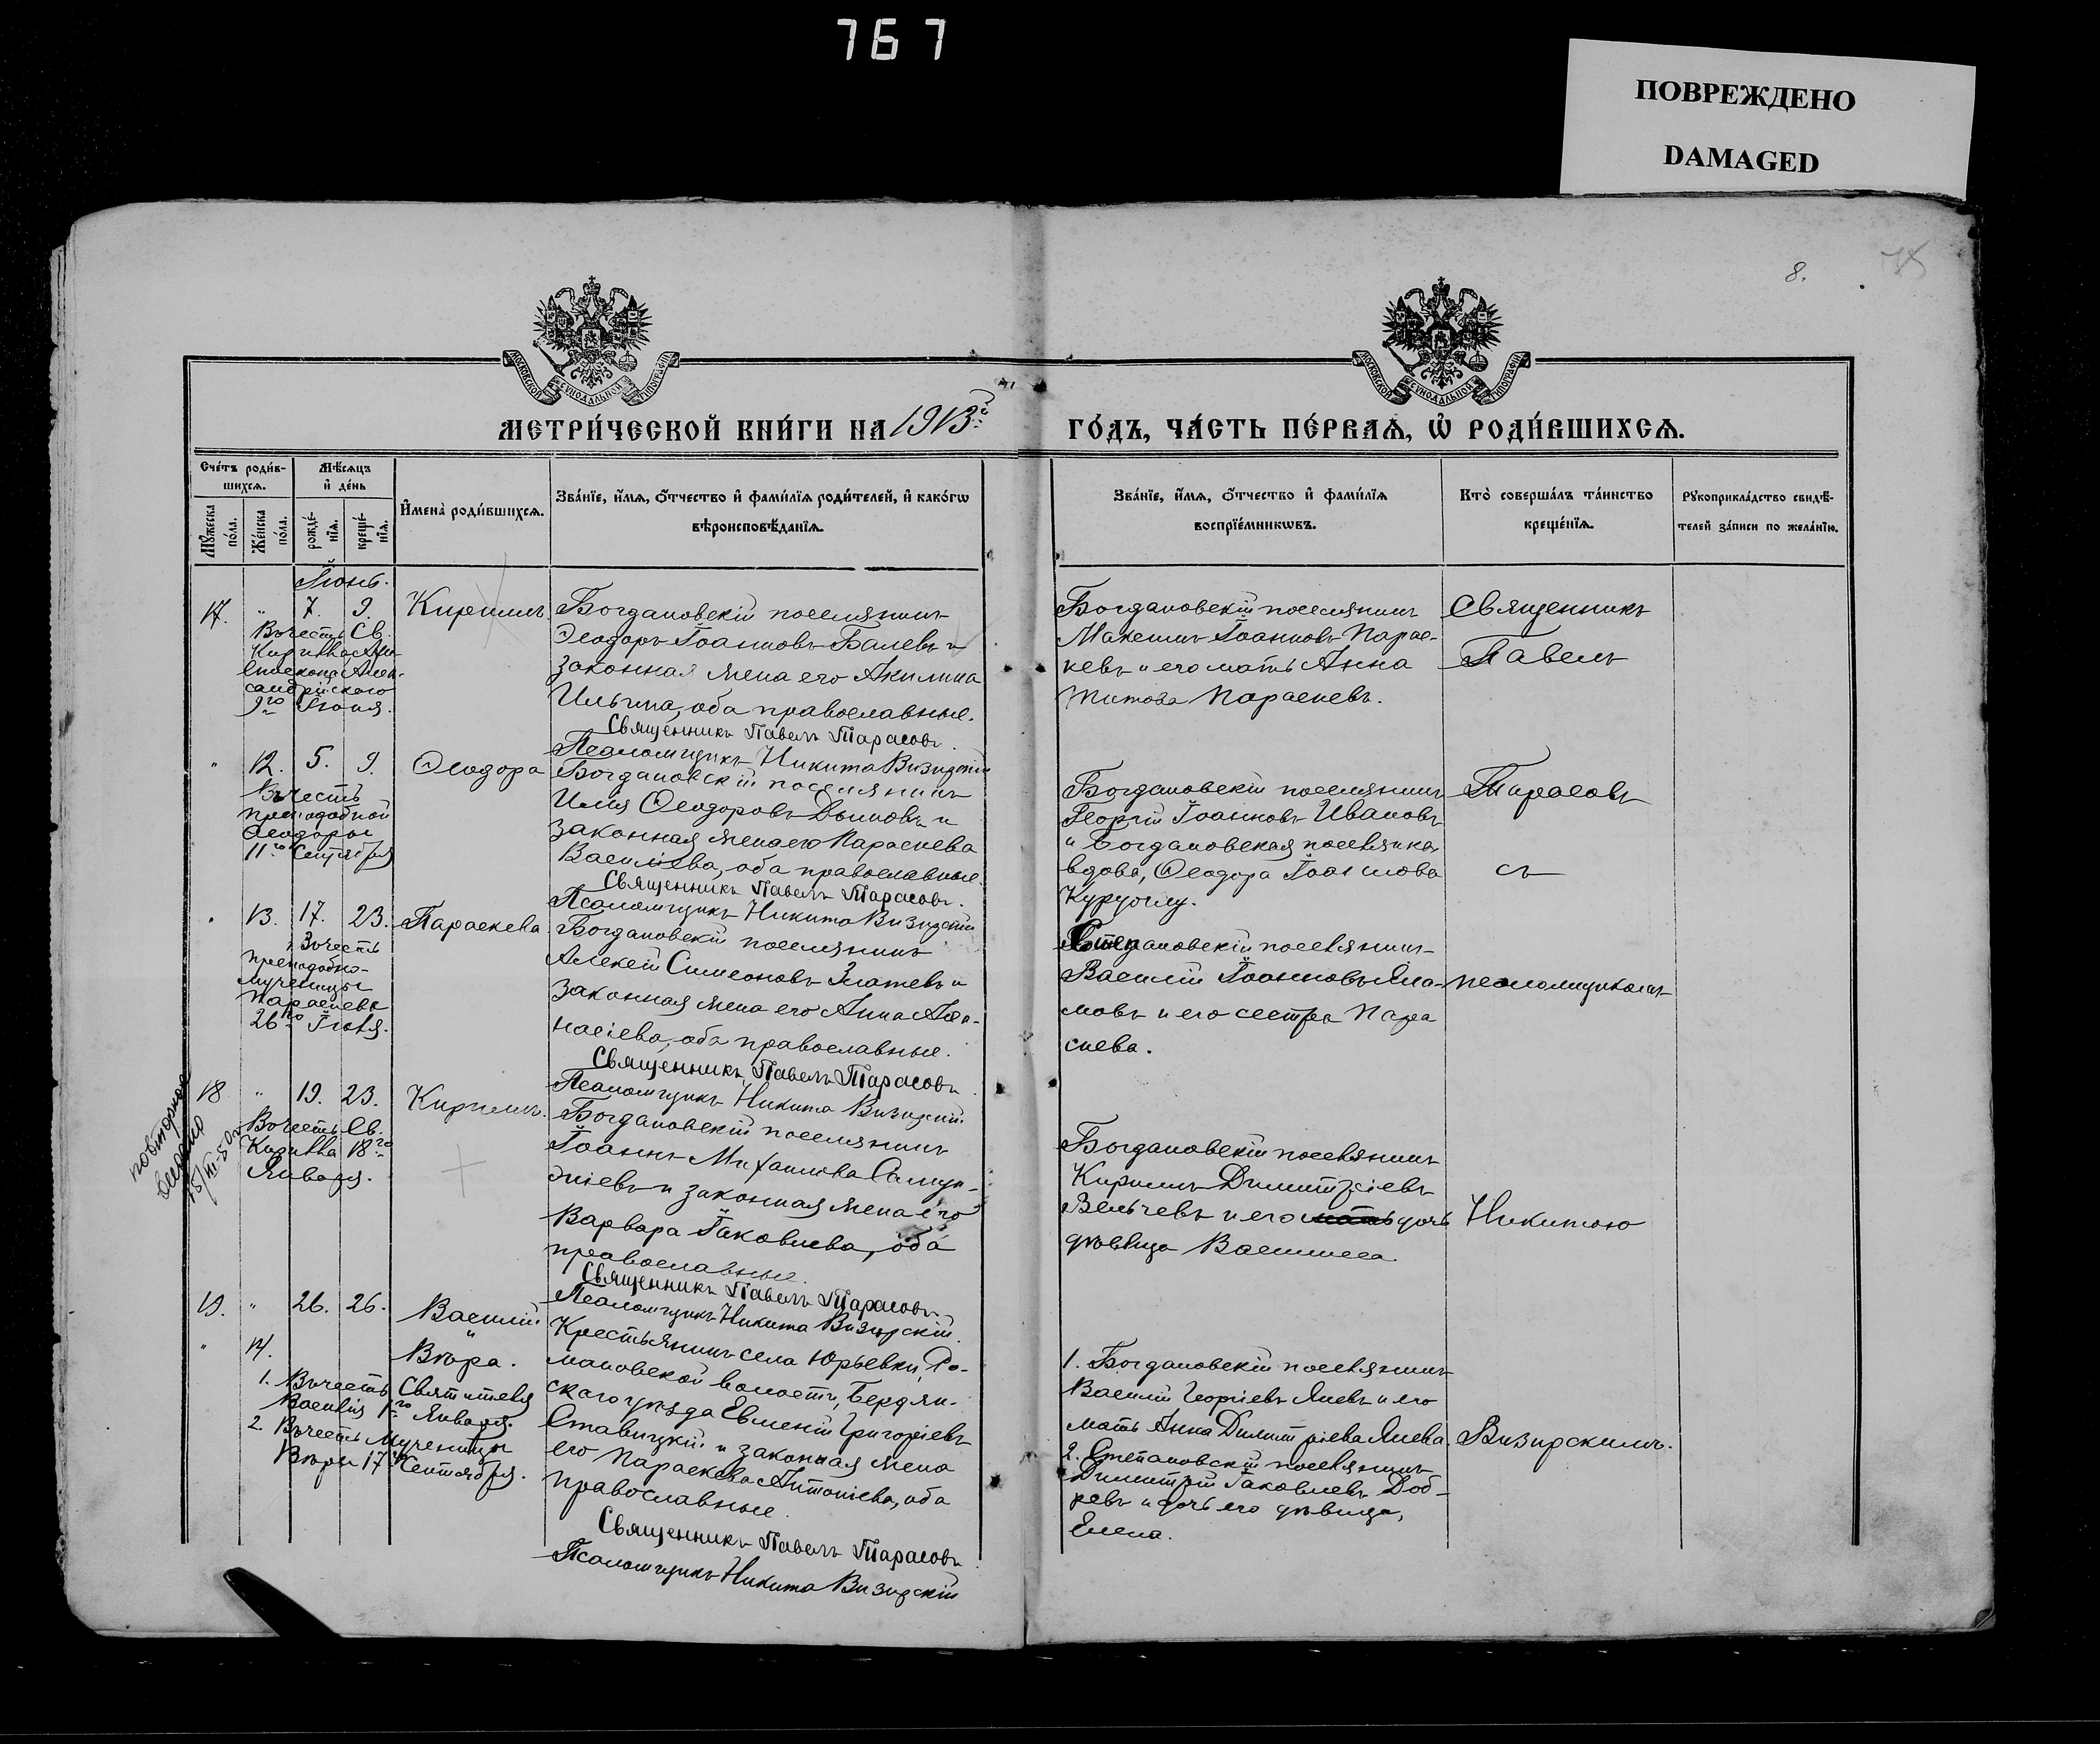 767
ПОВРЕЖДЕНО
DAMAGED
8.
МОСКОВСКОЙ СУНОДАЛЬНОЙ ТИПОГРАФІИ
МОСКОВСКОЙ СУНОДАЛЬНОЙ ТИПОГРАФІИ
МЕТРИ́ЧЕСКОЙ КНИ́ГИ НА 1913й
ГО́ДЪ, ЧА́СТЬ ПЕ́РВАѦ, Ѡ҆ РОДИ́ВШИХСѦ.
Сче́тъ роди́в-
шихсѧ.
Мѣ́сѧцъ
и҆ де́нь
Мꙋ́жеска
по́ла.
Же́нска
по́ла.
рожде́-
нїѧ.
креще́-
нїѧ.
И҆мена̀ роди́вшихсѧ.
Зва́нїе, и҆́мѧ, ѻ҆́тчество и҆ фами́лїѧ роди́телей, и҆ како́гѡ
вѣроисповѣ́данїѧ.
Зва́нїе, и҆́мѧ, ѻ҆́тчество и҆ фами́лїѧ
воспрїе́мникѡвъ.
Кто̀ соверша́лъ та́инство
креще́нїѧ.
Рꙋкоприкла́дство свидѣ́-
телей за́писи по жела́нїю.
Іюнь.
17. " 7. 9. Кириллъ.
Въ честь Св.
Кирилла Архі-
епископа Алек-
сандрійскаго
9го Іюня.
Богдановскій поселянинъ
Ѳеодоръ Іоанновъ Балевъ и
законная жена его Акилина
Ильина, оба православные.
Священникъ Павелъ Тарасовъ.
Псаломщикъ Никита Визирскій
Богдановскій поселянинъ
Максимъ Іоанновъ Парас-
кевъ и его мать Анна
Титова Параскевъ.
Священникъ
Павелъ
" 12. 5. 9. Ѳеодора
Въ честь
преподобной
Ѳеодоры
11го Сентября
Богдановскій поселянинъ
Илія Ѳеодоровъ Дымовъ и
законная жена его Параскева
Василіева, оба православные.
Священникъ Павелъ Тарасовъ.
Псаломщикъ Никита Визирскій
Богдановскій поселянинъ
Георгій Іоанновъ Ивановъ
и Богдановская поселянка
вдова, Ѳеодора Іоаннова
Куруоглу.
Тарасовъ
съ
" 13. 17. 23. Параскева
Въ честь
преподобно-
мученицы
Параскевы
26го Іюля.
Богдановскій поселянинъ
Алексій Симеоновъ Златевъ и
законная жена его Анна Аѳа-
насіева, оба православные.
Священникъ Павелъ Тарасовъ
Псаломщикъ Никита Визирскій
Степановскій поселянинъ
Василій Іоанновъ Яла-
мовъ и его сестра Пара
скева.
псаломщикомъ
18 " 19. 23. Кириллъ.
Въ честь Св.
Кирилла 18го
Января.
повторное
выдано
Богдановскій поселянинъ
Іоаннъ Михаиловъ Саму-
иліевъ и законная жена его
Варвара Іаковлева, оба
православные.
Священникъ Павелъ Тарасовъ
Псаломщикъ Никита Визирскій.
Богдановскій поселянинъ
Кириллъ Димитріевъ
Вельчевъ и его мать дочь
дѣвица Василиса.
Никитою
19. " 26. 26. Василій
"
" 14. Вѣра.
1. Въ честь Святителя
Василія 1го Января.
2. Въ честь Мученицы
Вѣры 17го Сентября.
Крестьянинъ села Юрьевки, Ро-
мановской волости, Бердян-
скаго уѣзда Евменій Григоріевъ
Ставицкій и законная жена
его Параскева Антоніева, оба
православные.
Священникъ Павелъ Тарасовъ
Псаломщикъ Никита Визирскій
1. Богдановскій поселянинъ
Василій Георгіевъ Яневъ и его
мать Анна Димитріева Янева.
2. Степановскій поселянинъ
Димитрій Іаковлевъ Доб-
ревъ и дочь его дѣвица,
Елена.
Визирскимъ.